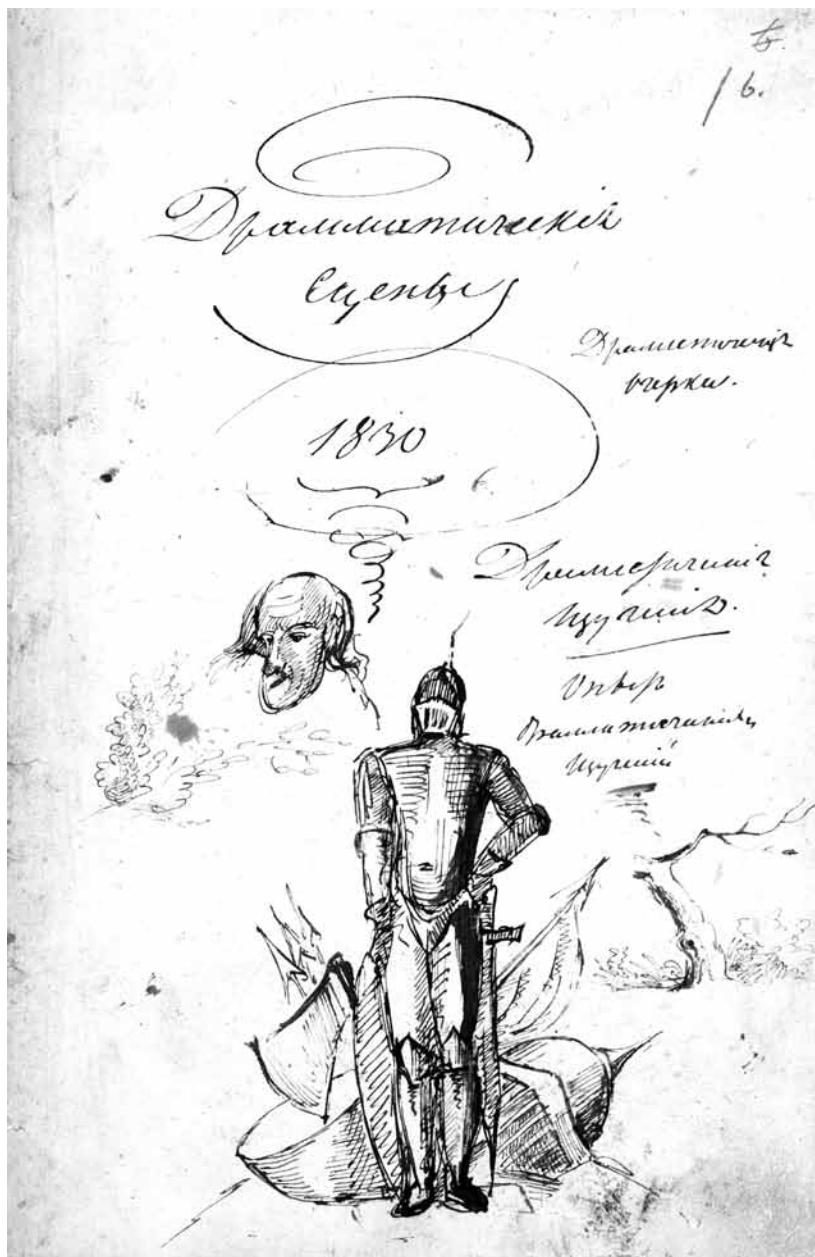 6.
Драмматическія
Сцены
Драматическіе
очерки.
1830
Драматическія
Изученія.
Опытъ
Драмматическихъ
Изученій